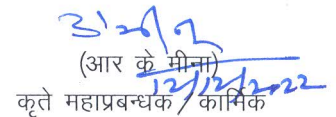 (आर के मीना)
12/12/2022
कृते महाप्रबन्धक / कार्मिक